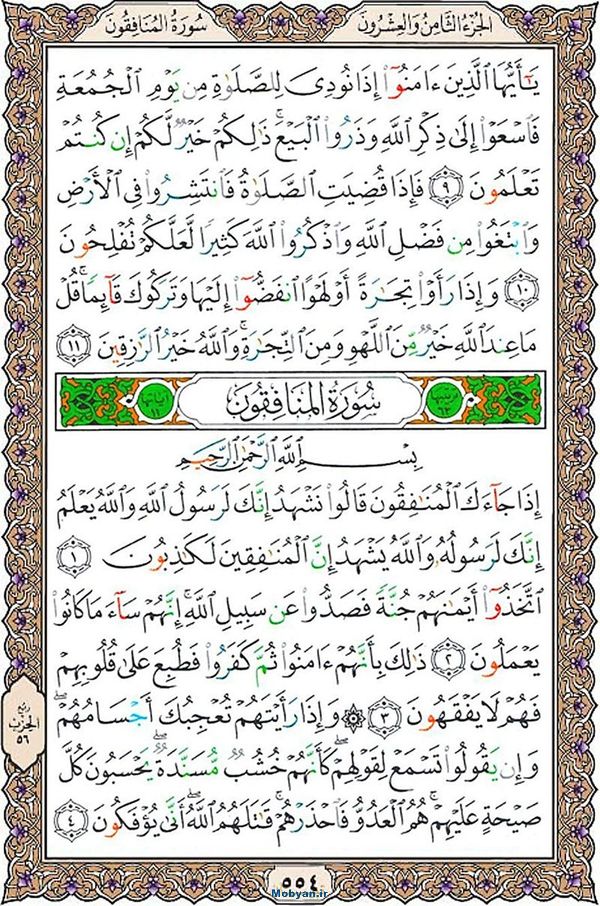 الجزء الثامن والعشرون
سورة المنافقون
يَٰٓأَيُّهَا ٱلَّذِينَ ءَامَنُوٓا۟ إِذَا نُودِىَ لِلصَّلَوٰةِ مِن يَوْمِ ٱلْجُمُعَةِ
فَٱسْعَوْا۟ إِلَىٰ ذِكْرِ ٱللَّهِ وَذَرُوا۟ ٱلْبَيْعَ ۚ ذَٰلِكُمْ خَيْرٌ لَّكُمْ إِن كُنتُمْ
تَعْلَمُونَ ٩ فَإِذَا قُضِيَتِ ٱلصَّلَوٰةُ فَٱنتَشِرُوا۟ فِى ٱلْأَرْضِ
وَٱبْتَغُوا۟ مِن فَضْلِ ٱللَّهِ وَٱذْكُرُوا۟ ٱللَّهَ كَثِيرًا لَّعَلَّكُمْ تُفْلِحُونَ
١٠ وَإِذَا رَأَوْا۟ تِجَٰرَةً أَوْ لَهْوًا ٱنفَضُّوٓا۟ إِلَيْهَا وَتَرَكُوكَ قَآئِمًا ۚ قُلْ
مَا عِندَ ٱللَّهِ خَيْرٌ مِّنَ ٱللَّهْوِ وَمِنَ ٱلتِّجَٰرَةِ ۚ وَٱللَّهُ خَيْرُ ٱلرَّٰزِقِينَ ١١
ترتيبها ٦٣
سُورَةُ المُنَافِقُونَ
آياتها ١١
بِسْمِ ٱللَّهِ ٱلرَّحْمَٰنِ ٱلرَّحِيمِ
إِذَا جَآءَكَ ٱلْمُنَٰفِقُونَ قَالُوا۟ نَشْهَدُ إِنَّكَ لَرَسُولُ ٱللَّهِ وَٱللَّهُ يَعْلَمُ
إِنَّكَ لَرَسُولُهُۥ وَٱللَّهُ يَشْهَدُ إِنَّ ٱلْمُنَٰفِقِينَ لَكَٰذِبُونَ ١
ٱتَّخَذُوٓا۟ أَيْمَٰنَهُمْ جُنَّةً فَصَدُّوا۟ عَن سَبِيلِ ٱللَّهِ ۚ إِنَّهُمْ سَآءَ مَا كَانُوا۟
يَعْمَلُونَ ٢ ذَٰلِكَ بِأَنَّهُمْ ءَامَنُوا۟ ثُمَّ كَفَرُوا۟ فَطُبِعَ عَلَىٰ قُلُوبِهِمْ
فَهُمْ لَا يَفْقَهُونَ ٣ ۞ وَإِذَا رَأَيْتَهُمْ تُعْجِبُكَ أَجْسَامُهُمْ ۖ
وَإِن يَقُولُوا۟ تَسْمَعْ لِقَوْلِهِمْ ۖ كَأَنَّهُمْ خُشُبٌ مُّسَنَّدَةٌ ۖ يَحْسَبُونَ كُلَّ
صَيْحَةٍ عَلَيْهِمْ ۚ هُمُ ٱلْعَدُوُّ فَٱحْذَرْهُمْ ۚ قَٰتَلَهُمُ ٱللَّهُ ۖ أَنَّىٰ يُؤْفَكُونَ ٤
ربع
الحزب
٥٦
٥٥٤
Mobyan.ir